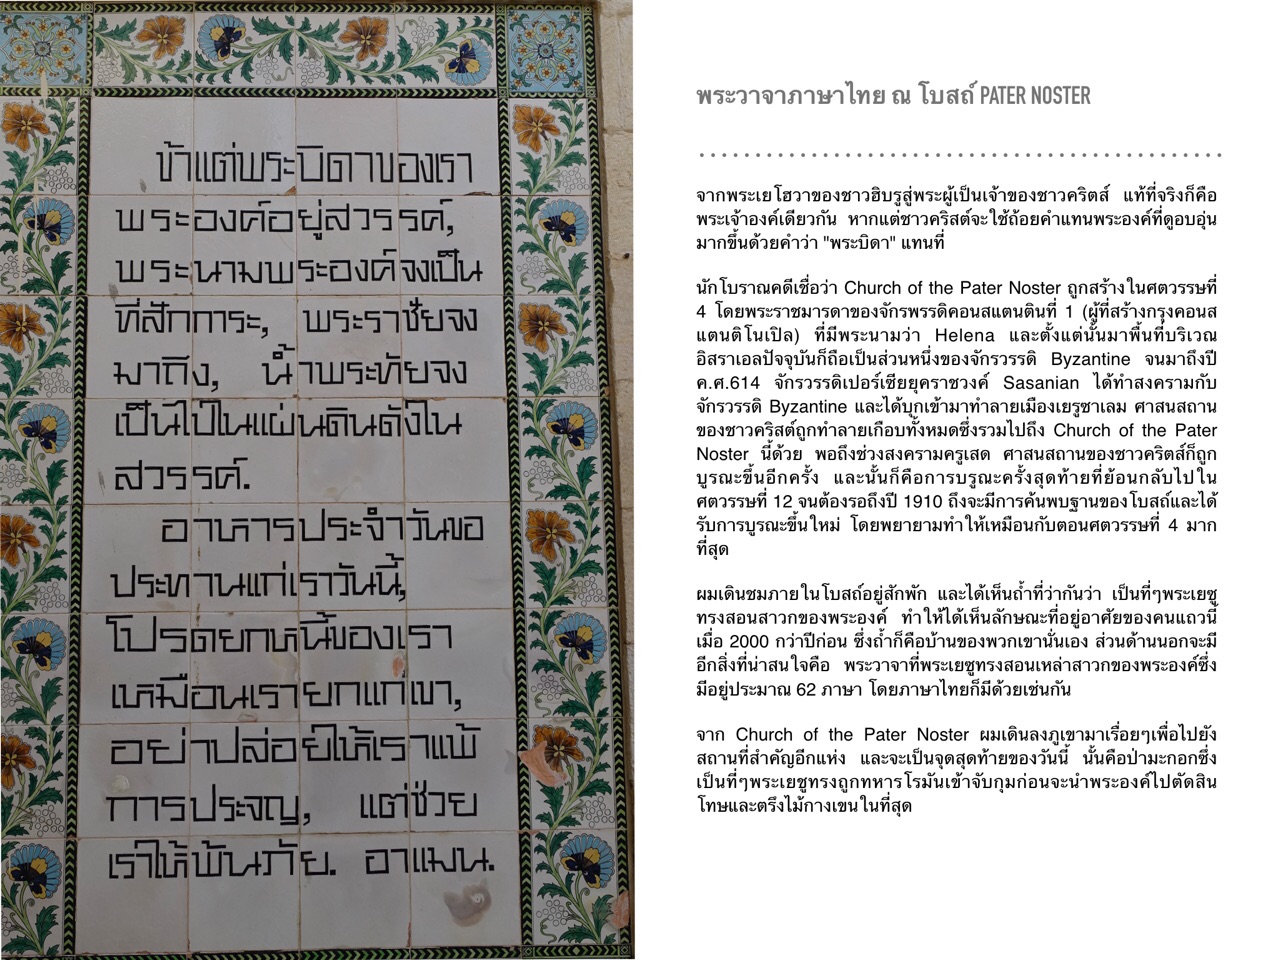 ข้าแต่พระบิดาของเรา
พระองค์อยู่สวรรค์,
พระนามพระองค์จงเป็น
ที่สักการะ, พระราชัยจง
มาถึง, น้ำพระทัยจง
เป็นไปในแผ่นดินดังใน
สวรรค์.
อาหารประจำวันขอ
ประทานแก่เราวันนี้,
โปรดยกหนี้ของเรา
เหมือนเรายกแก่เขา,
อย่าปล่อยให้เราแพ้
การประจญ, แต่ช่วย
เราให้พ้นภัย. อาแมน.
พระวาจาภาษาไทย ณ โบสถ์ PATER NOSTER
จากพระเยโฮวาของชาวฮิบรูสู่พระผู้เป็นเจ้าของชาวคริตส์ แท้ที่จริงก็คือ
พระเจ้าองค์เดียวกัน หากแต่ชาวคริสต์จะใช้ถ้อยคำแทนพระองค์ที่ดูอบอุ่น
มากขึ้นด้วยคำว่า "พระบิดา" แทนที่
นักโบราณคดีเชื่อว่า Church of the Pater Noster ถูกสร้างในศตวรรษที่
4 โดยพระราชมารดาของจักรพรรดิคอนสแตนตินที่ 1 (ผู้ที่สร้างกรุงคอนส
แตนติโนเปิล) ที่มีพระนามว่า Helena และตั้งแต่นั้นมาพื้นที่บริเวณ
อิสราเอลปัจจุบันก็ถือเป็นส่วนหนึ่งของจักรวรรดิ Byzantine จนมาถึงปี
ค.ศ.614 จักรวรรดิเปอร์เซียยุคราชวงค์ Sasanian ได้ทำสงครามกับ
จักรวรรดิ Byzantine และได้บุกเข้ามาทำลายเมืองเยรูซาเลม ศาสนสถาน
ของชาวคริสต์ถูกทำลายเกือบทั้งหมดซึ่งรวมไปถึง Church of the Pater
Noster นี้ด้วย พอถึงช่วงสงครามครูเสด ศาสนสถานของชาวคริตส์ก็ถูก
บูรณะขึ้นอีกครั้ง และนั้นก็คือการบรูณะครั้งสุดท้ายที่ย้อนกลับไปใน
ศตวรรษที่ 12 จนต้องรอถึงปี 1910 ถึงจะมีการค้นพบฐานของโบสถ์และได้
รับการบูรณะขึ้นใหม่ โดยพยายามทำให้เหมือนกับตอนศตวรรษที่ 4 มาก
ที่สุด
ผมเดินชมภายในโบสถ์อยู่สักพัก และได้เห็นถ้ำที่ว่ากันว่า เป็นที่ๆพระเยซู
ทรงสอนสาวกของพระองค์ ทำให้ได้เห็นลักษณะที่อยู่อาศัยของคนแถวนี้
เมื่อ 2000 กว่าปีก่อน ซึ่งถ้ำก็คือบ้านของพวกเขานั่นเอง ส่วนด้านนอกจะมี
อีกสิ่งที่น่าสนใจคือ พระวาจาที่พระเยซูทรงสอนเหล่าสาวกของพระองค์ซึ่ง
มีอยู่ประมาณ 62 ภาษา โดยภาษาไทยก็มีด้วยเช่นกัน
จาก Church of the Pater Noster ผมเดินลงภูเขามาเรื่อยๆเพื่อไปยัง
สถานที่สำคัญอีกแห่ง และจะเป็นจุดสุดท้ายของวันนี้ นั้นคือป่ามะกอกซึ่ง
เป็นที่ๆพระเยซูทรงถูกทหารโรมันเข้าจับกุมก่อนจะนำพระองค์ไปตัดสิน
โทษและตรึงไม้กางเขนในที่สุด